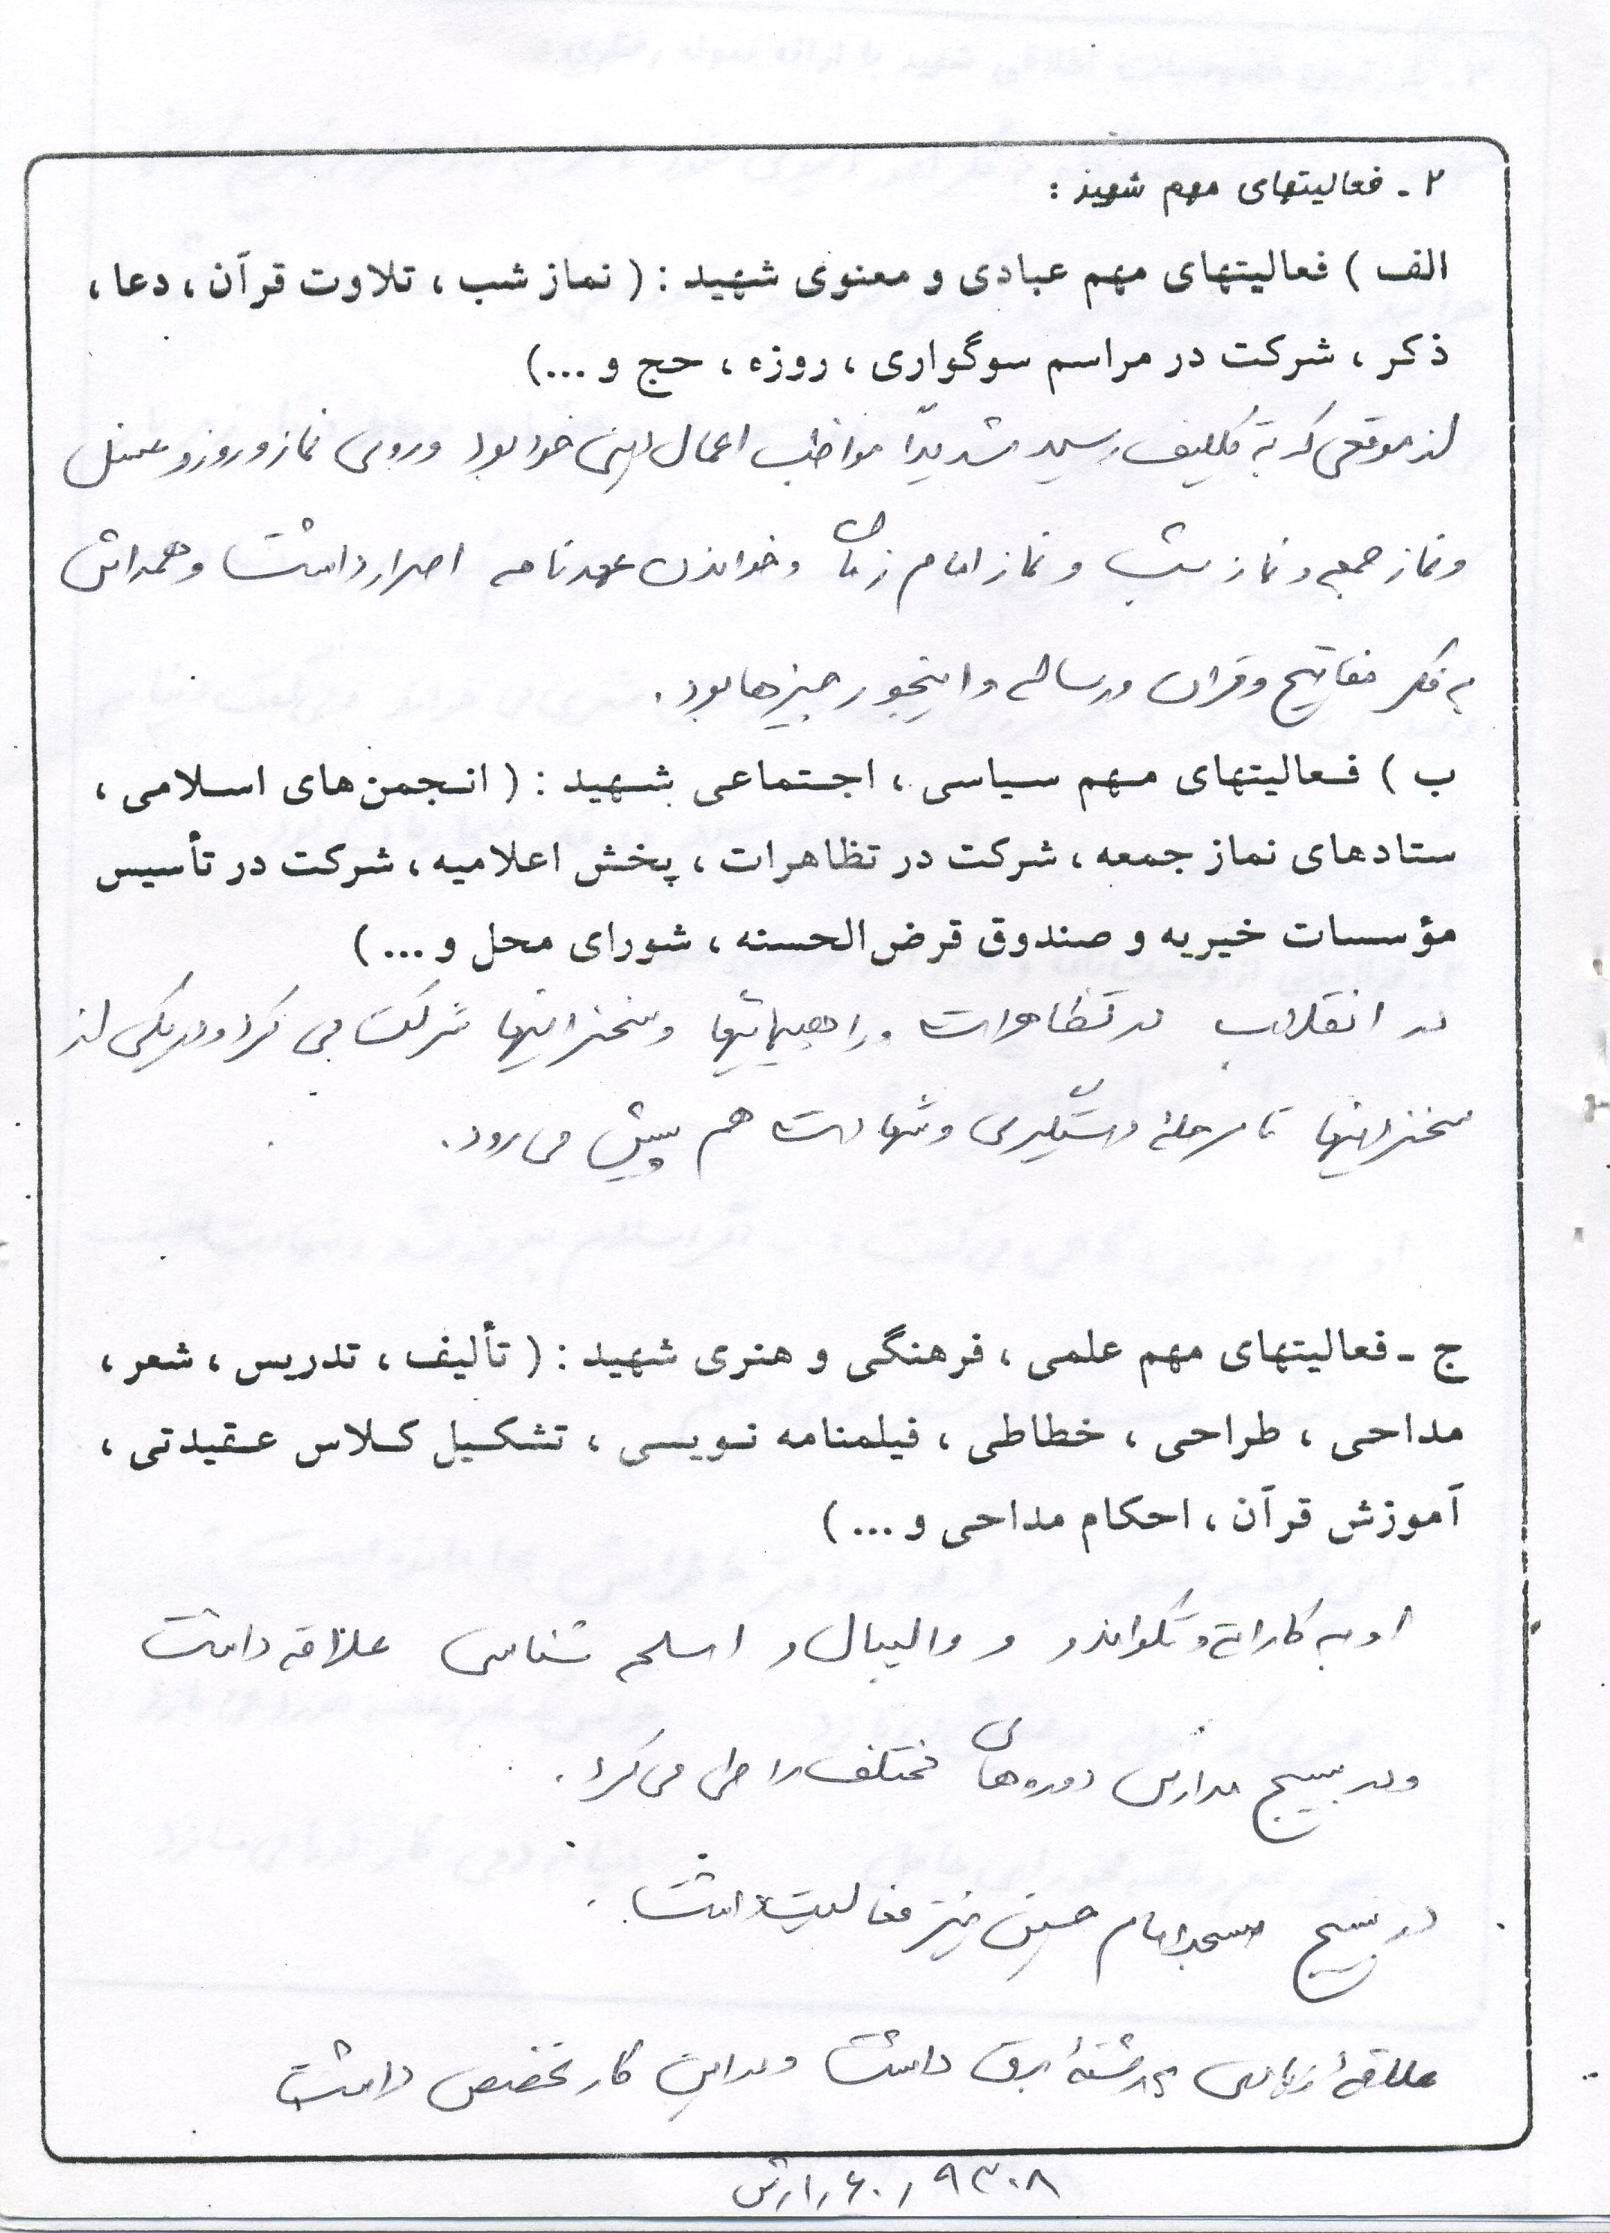 ۲ - فعالیتهای مهم شهید :
الف ) فعالیتهای مهم عبادی و معنوی شهید : ( نماز شب ، تلاوت قرآن ، دعا ،
ذکر ، شرکت در مراسم سوگواری ، روزه ، حج و ...)
از موقعی که به تکلیف رسید شدیداً مواظب اعمال دینی خود بود و روی نماز و روزه و غسل
و نماز جمعه و نماز شب و نماز امام زمان و خواندن عهدنامه اصرار داشت و همه اش
به فکر مفاتیح و قران و رساله و اینجور چیزها بود .
ب ) فعالیتهای مهم سیاسی ، اجتماعی شهید : ( انجمن‌های اسلامی ،
ستادهای نماز جمعه ، شرکت در تظاهرات ، پخش اعلامیه ، شرکت در تأسیس
مؤسسات خیریه و صندوق قرض‌الحسنه ، شورای محل و ... )
در انقلاب در تظاهرات و راهپیمائیها و سخنرانیها شرکت می کرد و در یکی از
سخنرانیها تا مرحله دستگیری و شهادت هم پیش می رود .
ج - فعالیتهای مهم علمی ، فرهنگی و هنری شهید : ( تألیف ، تدریس ، شعر ،
مداحی ، طراحی ، خطاطی ، فیلمنامه نویسی ، تشکیل کلاس عقیدتی ،
آموزش قرآن ، احکام مداحی و ... )
او به کاراته و تکواندو و والیبال و اسلحه شناسی علاقه داشت
و در بسیج مدارس دوره های مختلف را طی می کرد .
در بسیج مسجد امام حسین نیز فعالیت داشت .
علاقهٔ زیادی به رشتهٔ برق داشت و در این کار تخصص داشت
۹۳۰۸